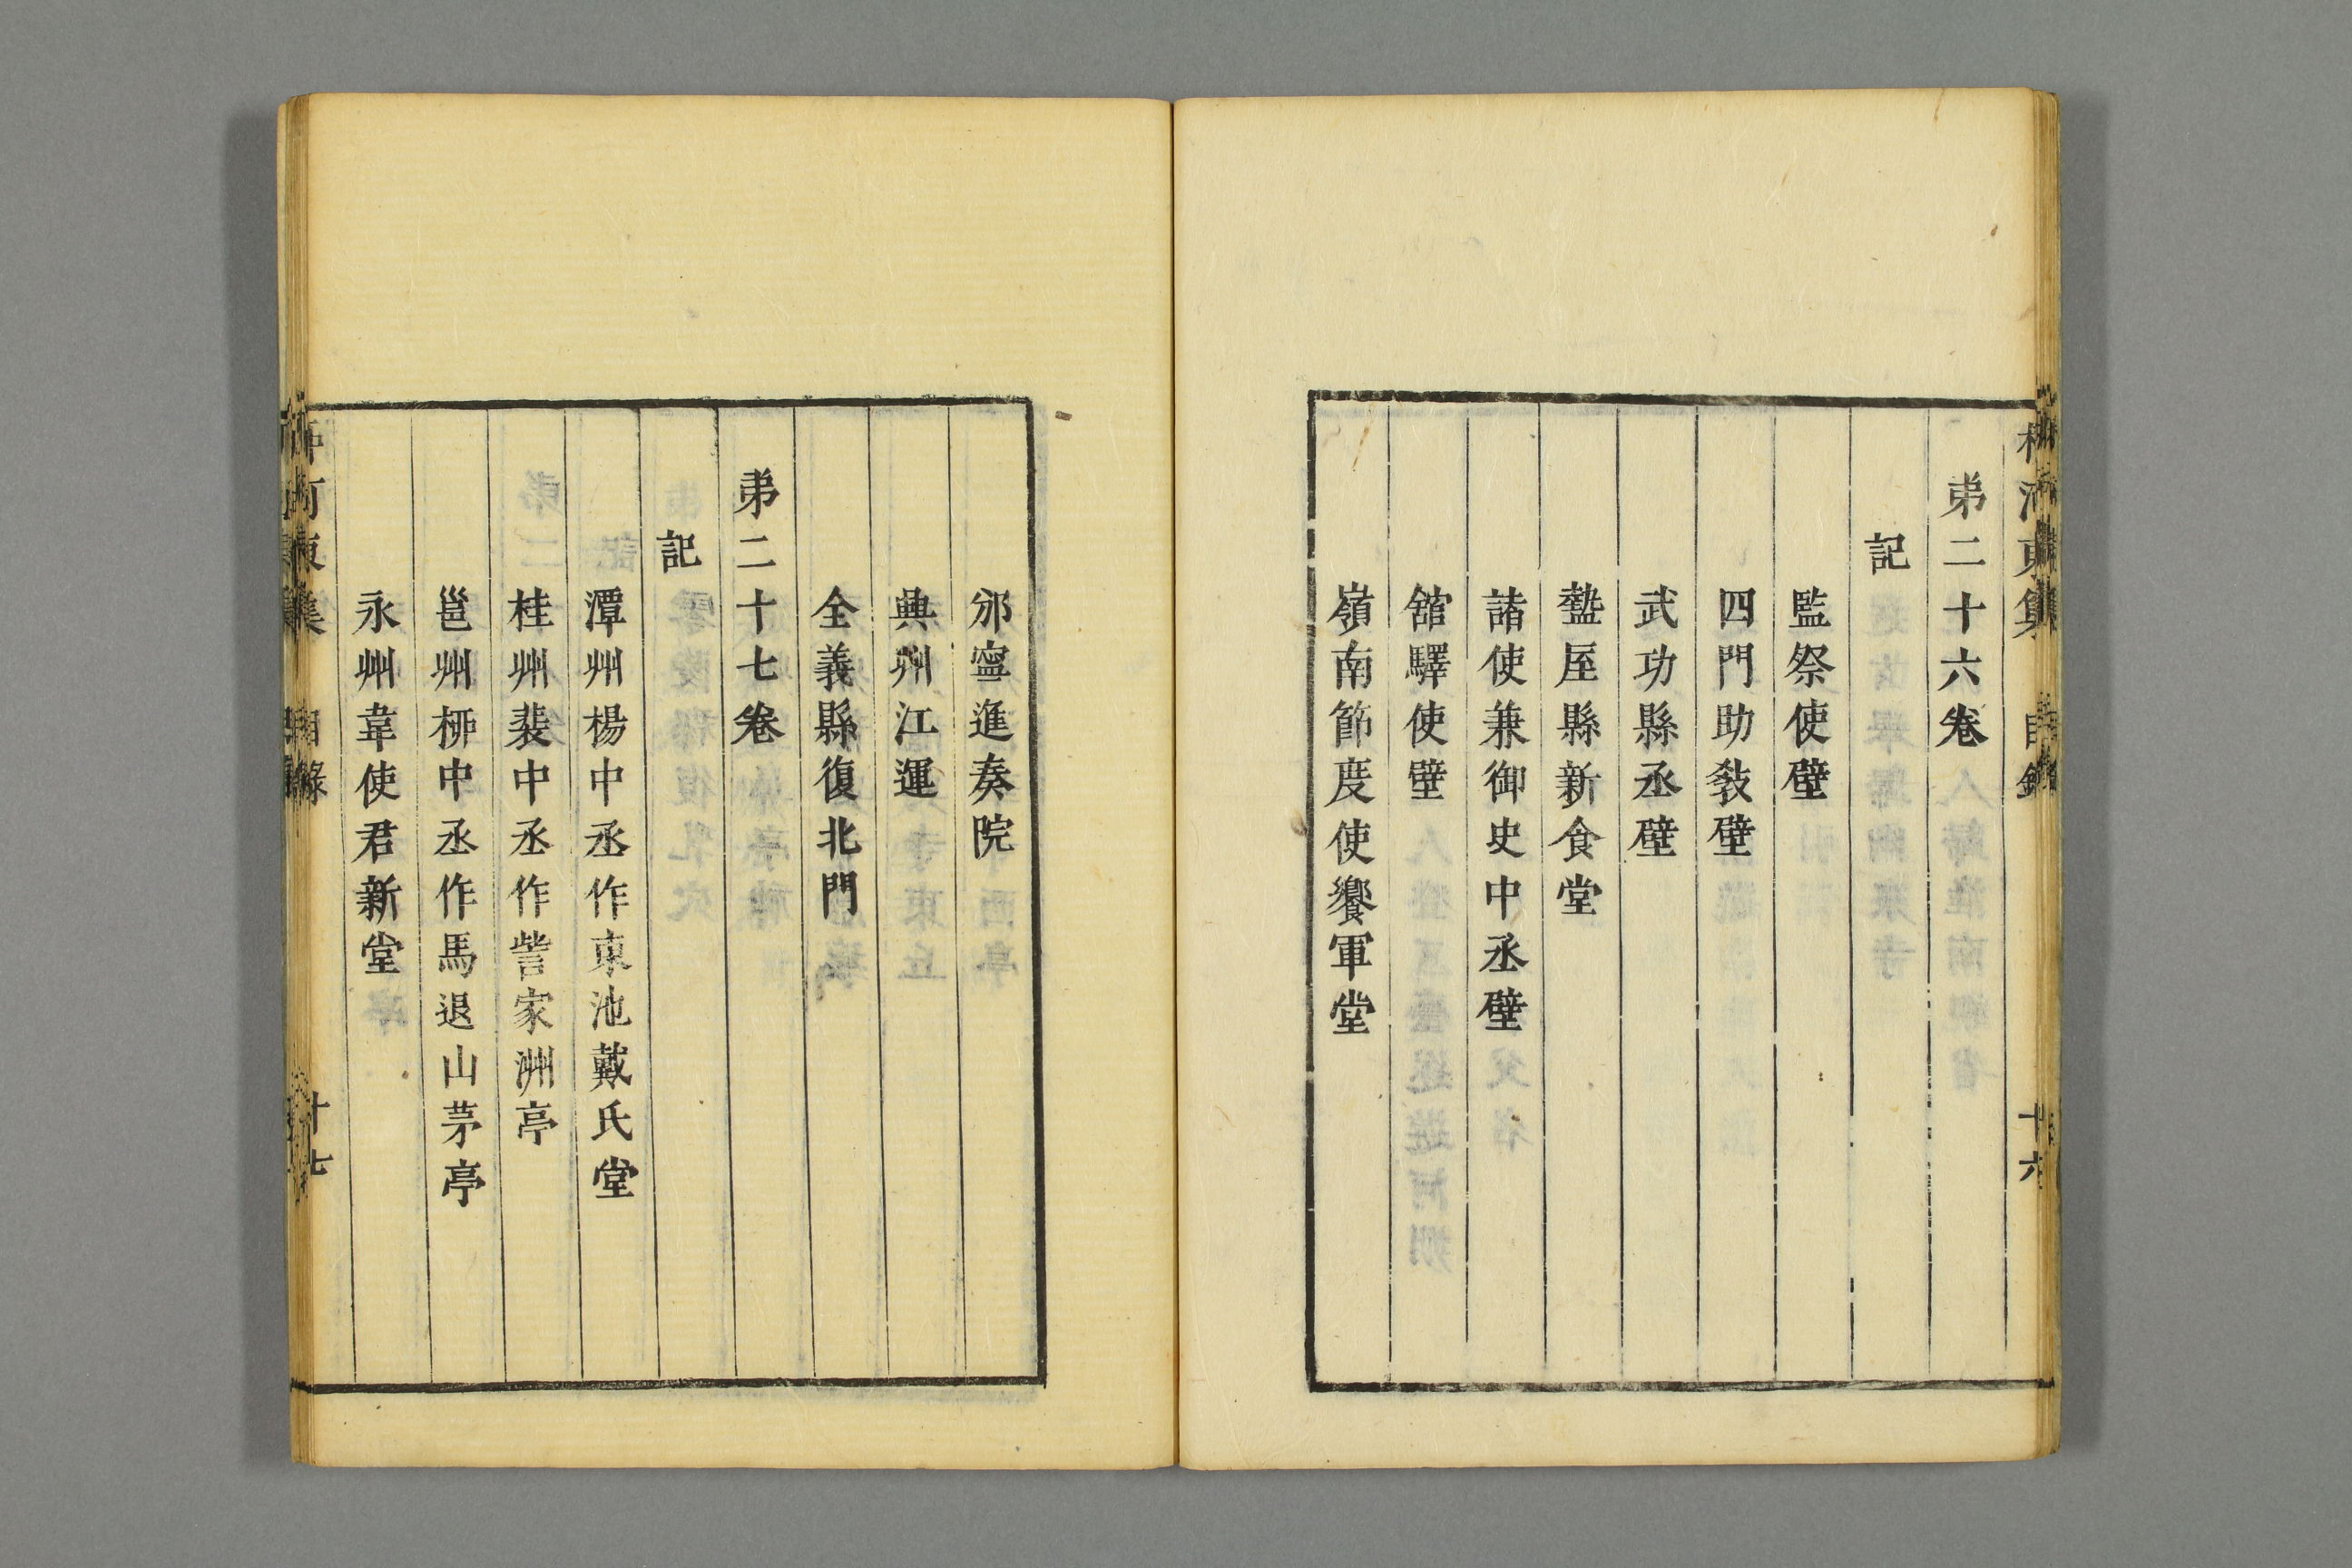 弟二十六卷
記
監祭使壁
四門助敎壁
武功縣丞壁
盩厔縣新食堂
諸使兼御史中丞壁
舘驛使壁
嶺南節度使饗軍堂
邠寧進奏院
興州江運
全義縣復北門
弟二十七卷
記
潭州楊中丞作東池戴氏堂
桂州裴中丞作訾家洲亭
邕州栁中丞作馬退山茅亭
永州韋使君新堂
河東集
目錄
十七